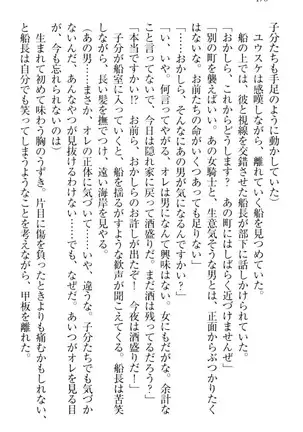 子分たちも手足のように動いていた」
ユウスケは感嘆しながら、離れていく船を見つめていた。
船の上では、彼と視線を交錯させた船長が部下に話しかけられていた。
「おかしら、これからどうします？　あの町にはしばらく近づけませんぜ」
「別の町を襲えばいい。あの女騎士と、生意気そうな男とは、正面からぶつかりたく
ない。お前たちの命がいくつあっても足りない」
「……おかしら、あの男が気になるんですかい？」
「い、いや。何言ってやがる。オレは男になんて興味はない。女にもだがな。余計な
こと言ってないで、今日は隠れ家に戻って酒盛りだ。まだ酒は残ってるだろう？」
「本当ですかい？　お前ら、おかしらのお許しが出たぞ！　今夜は酒盛りだ！」
子分が船室に入っていくと、船を揺るがすような歓声が聞こえてくる。船長は苦笑
しながら、長い髪をすっとかきあげ、遠い海岸を見やる。
「あの男……まさか、オレの正体に気づいて……いや、違うな。子分たちでも気づか
ないものを、あんなやつが見抜けるわけない……でも、なぜだ。あいつがオレを見る目
が、今も忘れられないのは」
生まれて初めて味わう胸のうずき。片目に傷を負ったときよりも痛むかもしれない
と船長は自分でも笑ってしまうようなことを考えながら、甲板を離れた。